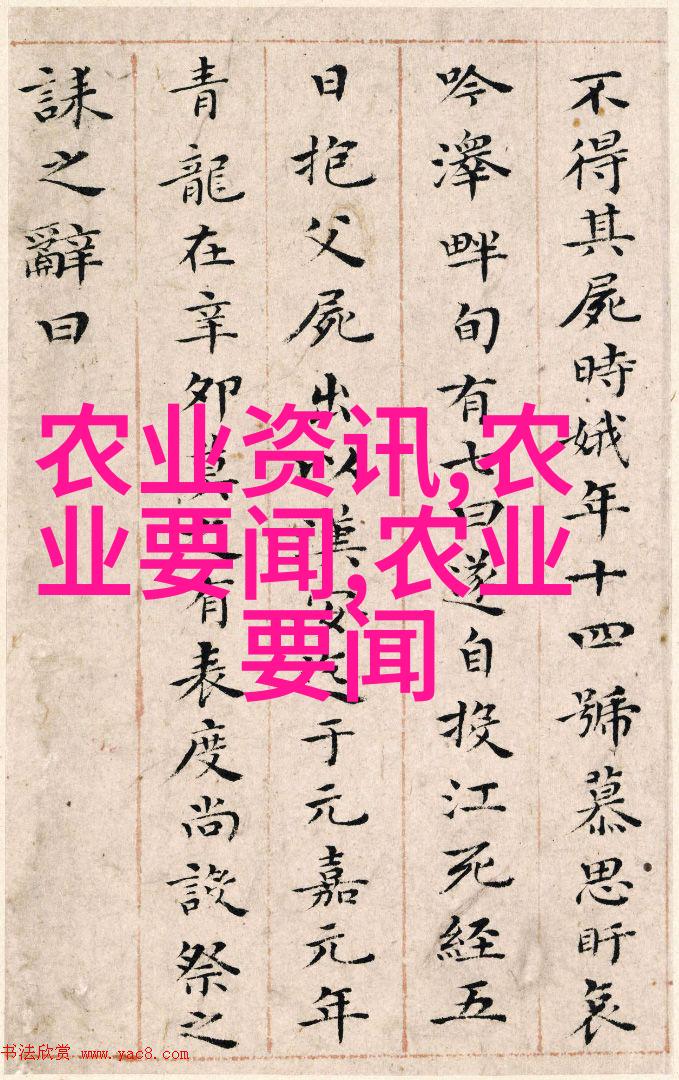 不得其屍時娥年十四號慕思盱哀
吟澤畔旬有七日遂自投江死經五
日抱父屍出以漢安迄于元嘉元年
青龍在辛卯莫之有表度尚設祭之
誄之辭曰
农业资讯,农
业要闻,农业
要闻
书法欣赏 www.yac8.com